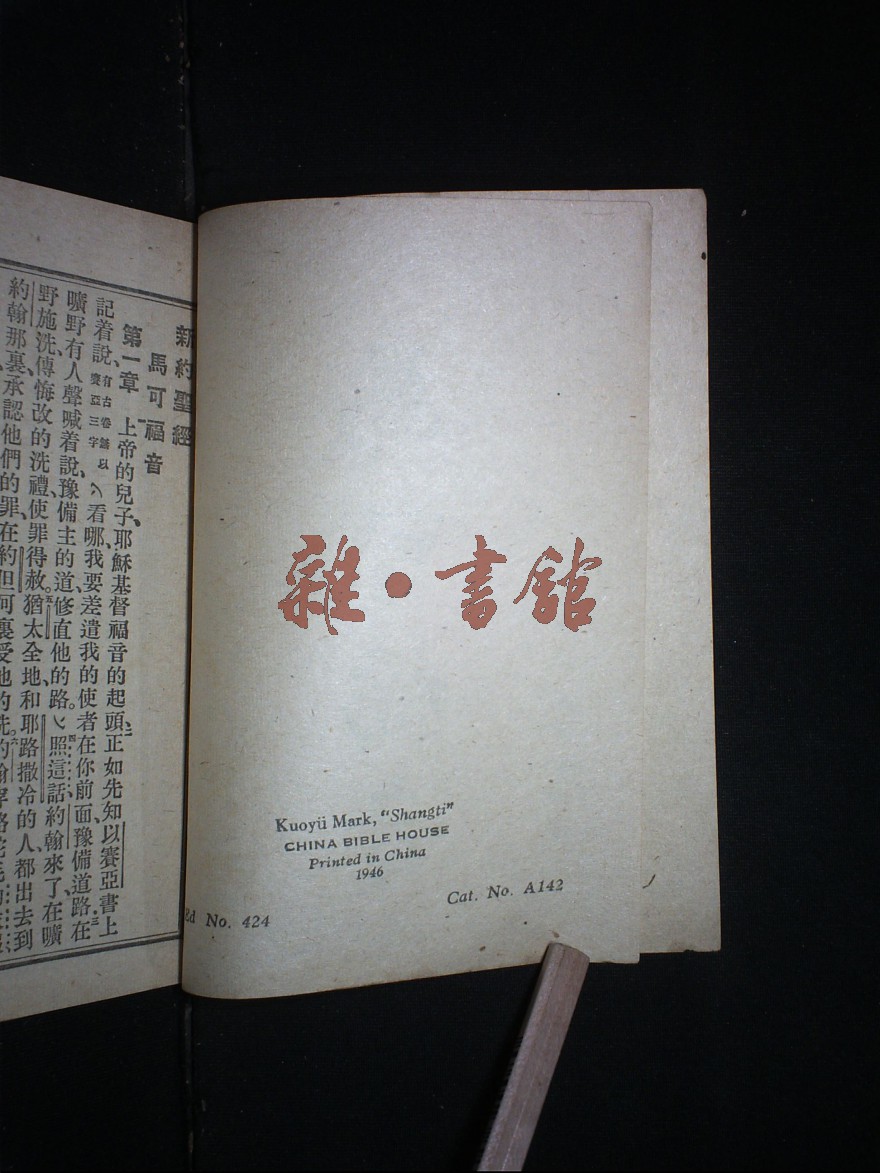 新約聖經
馬可福音
第一章 上帝的兒子、耶穌基督福音的起頭、二正如先知以賽亞書上
記着說、有古卷無以賽亞三字看哪、我要差遣我的使者在你前面、豫備道路、三在
曠野有人聲喊着說、豫備主的道、修直他的路。四照這話、約翰來了、在曠
野施洗、傳悔改的洗禮、使罪得赦。五猶太全地、和耶路撒冷的人、都出去到
約翰那裏、承認他們的罪、在約但河裏受他的洗。六約翰穿駱駝毛的
雜·書館
Kuoyü Mark, “Shangti”
CHINA BIBLE HOUSE
Printed in China
1946
Ed No. 424
Cat. No. A142